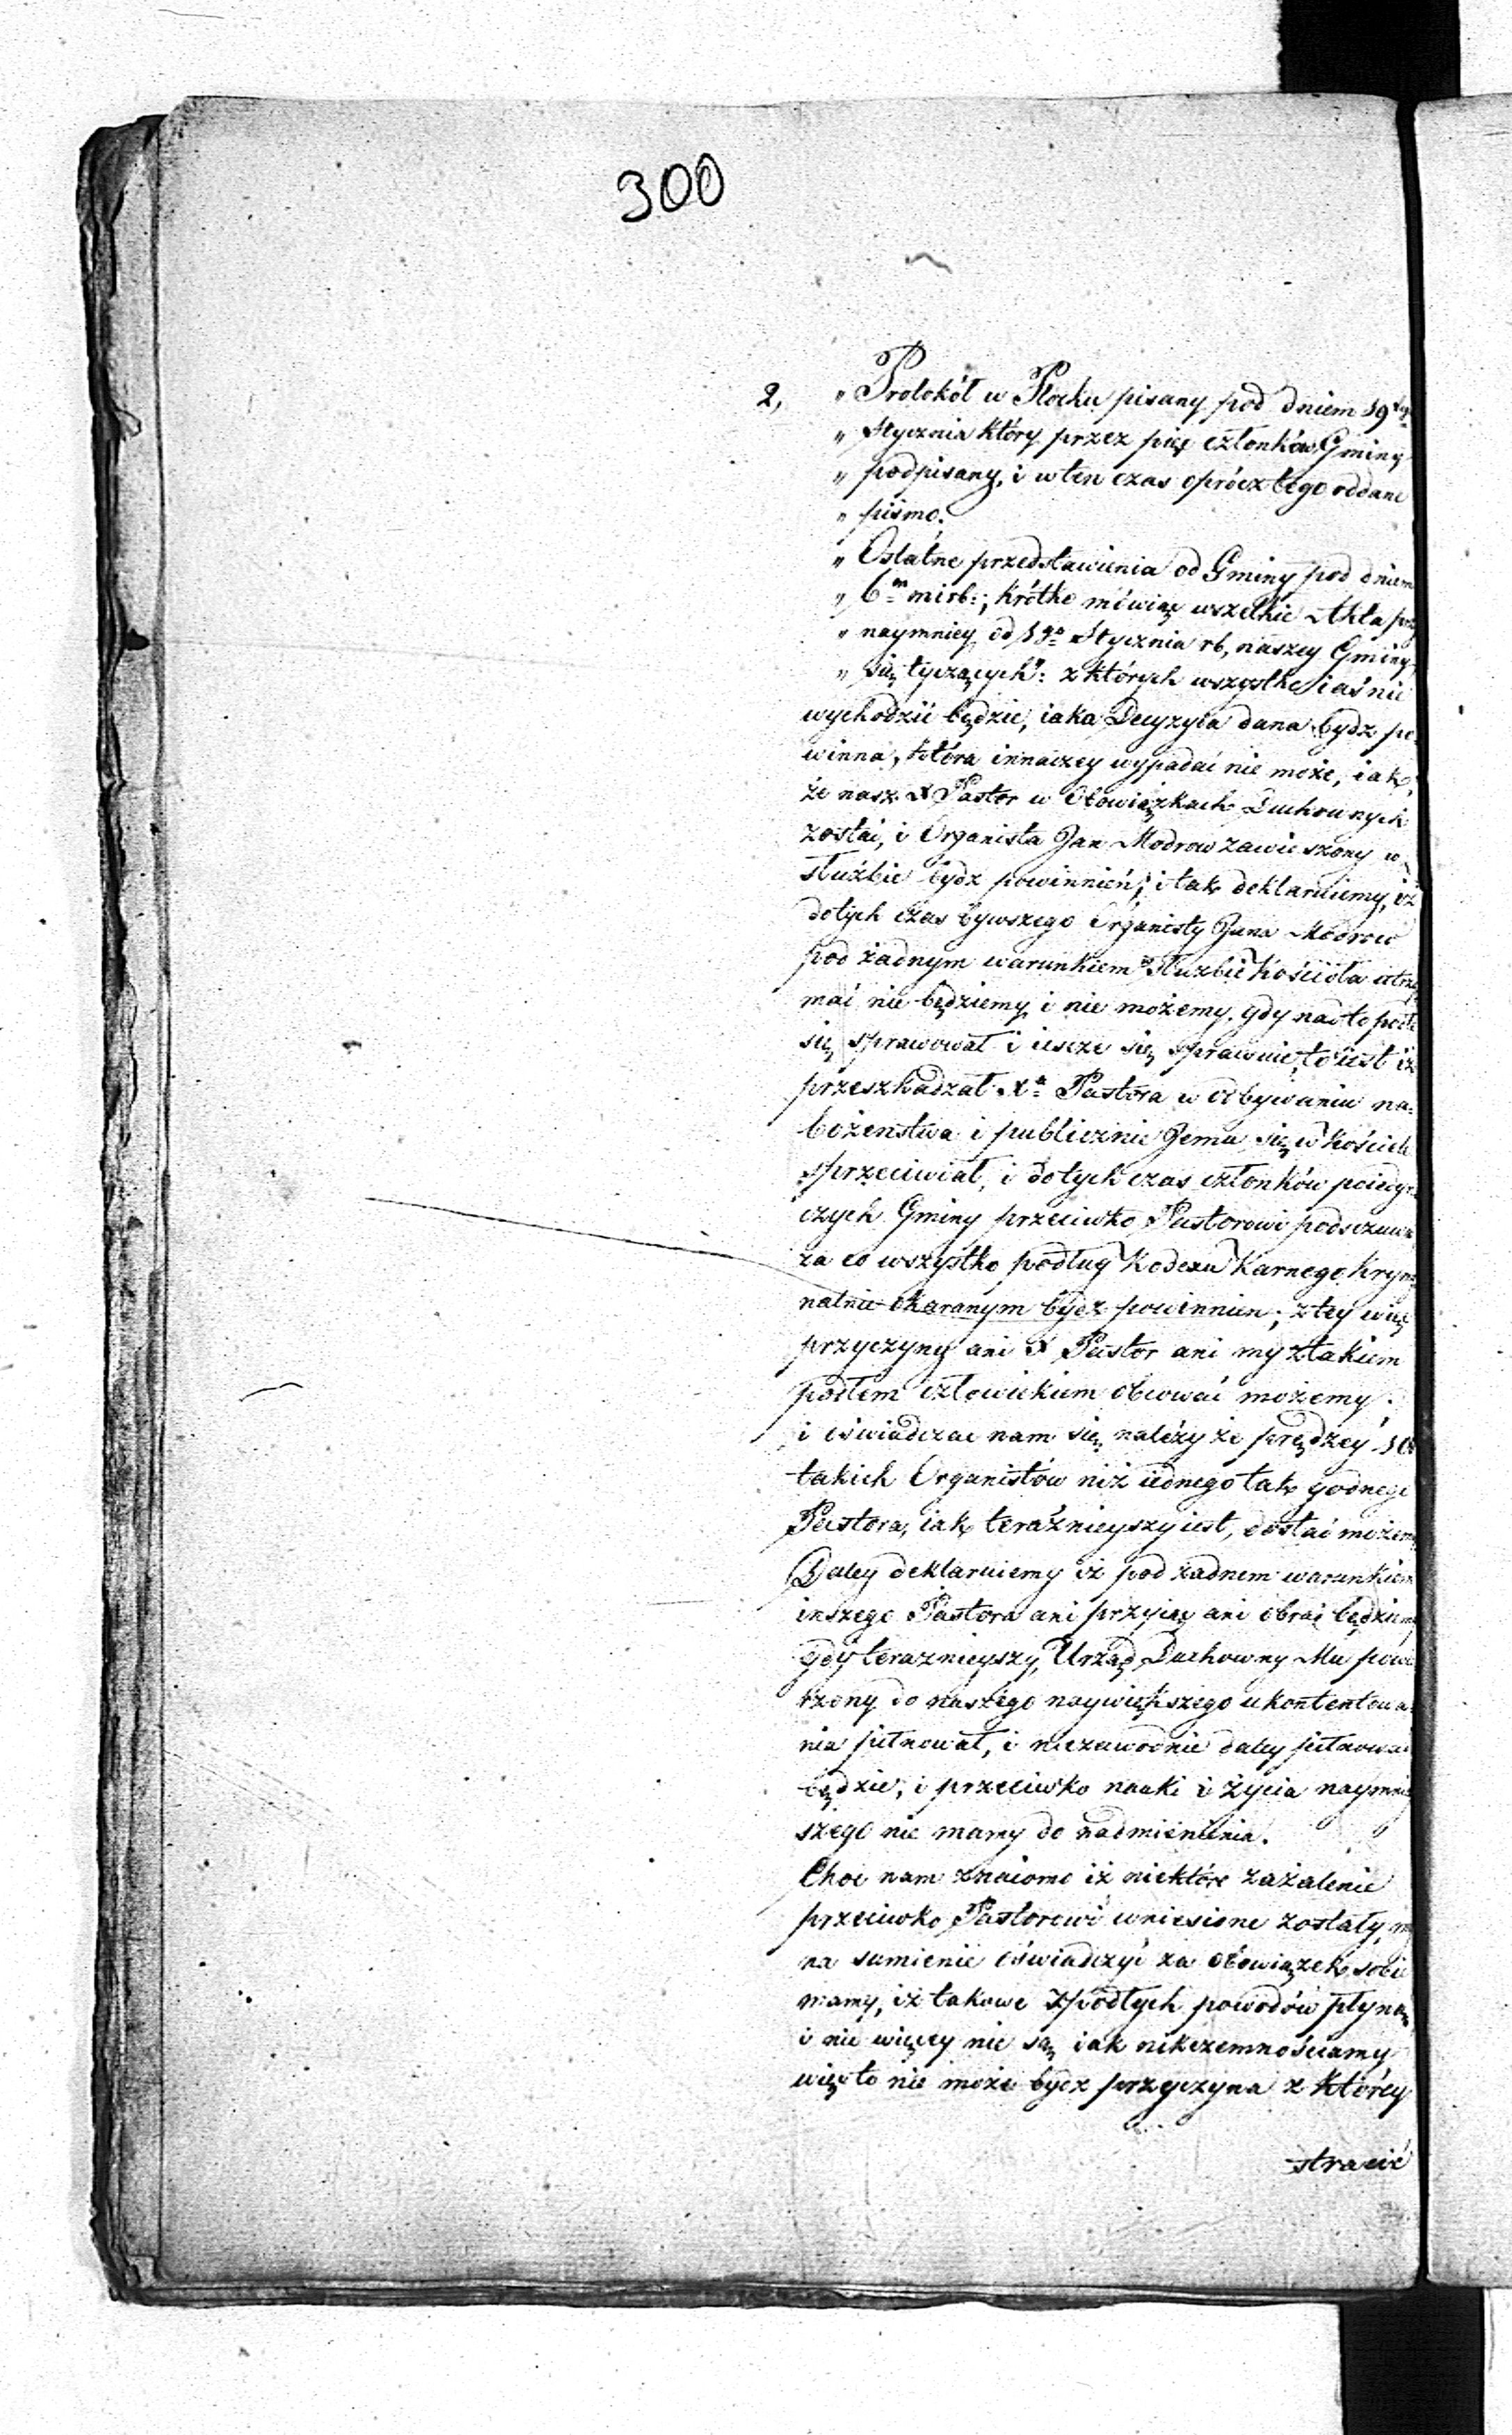 300
2, „ Protokół w Płocku pisany pod dniem 19tego
„ Stycznia który przez pięć członków Gminy
„ podpisany, i wten czas oprócz tego oddane
„ pismo.
„ Ostatne przedstawienia od Gminy pod dniem
„ 6m m i rb:; krótko mówiąc wszelkie Akta przy
„ naymniey od 19go Stycznia rb, naszey Gminy,
„ się tyczących": z których wszystko iaśnie
wychodzić będzie, iaka Decyzyia dana bydz po-
winna, która innaczey wypadać nie może, iak,
że nasz X Pastor w Obowiązkach Duchownych
zostać, i Organista Jan Modrow zawieszony w
służbie bydz powinnień; i tak deklaruiemy, iż
dotych czas bywszego Organisty Jana Modrow
pod żadnym warunkiem w Służbie Kościoła utrzy
mać nie będziemy i nie możemy. gdy nadto podle
się sprawował i iescze się sprawuie, to iest iż
przeszkadzał Xa Pastora w odbywaniu na-
bożenstwa i publicznie Jemu się w Kościele
sprzeciwiał, i dotych czas członków poiedyn
czych Gminy przeciwko Pastorowi podsczuwa
za co wszystko podług Kodexu Karnego Krymi
nalnie ukaranym bydz powinnien; z tey więc
przyczyny ani X Pastor ani my z takiem
podłem człowiekiem obcować możemy.
i oświadczac nam się należy że prędzey 100
takich Organistów niż iednego tak godnego
Pastora, iak teraźnieyszy iest, dostać możemy
Daley deklaruiemy iż pod żadnem warunkiem
inszego Pastora ani przyiąc ani obrać będziemy
gdy teraznieyszy, Urząd Duchowny Mu powie
rzony do naszego naywiększego ukontentowa
nia pilnował, i niezawodnie daley pilnować
będzie, i przeciwko nauki i życia naymniey
szego nie mamy do nadmienienia.
Choc nam znaiomo iż niektóre zażalenie
przeciwko Pastorowi wniesione zostały, my
na sumienie oświadczyć za obowiązek sobie
mamy, iż takowe z podłych powodów płyną
i nic więcey nie są iak nikczemnościamy
więc to nie może bydz przyczyna z którey
stracić